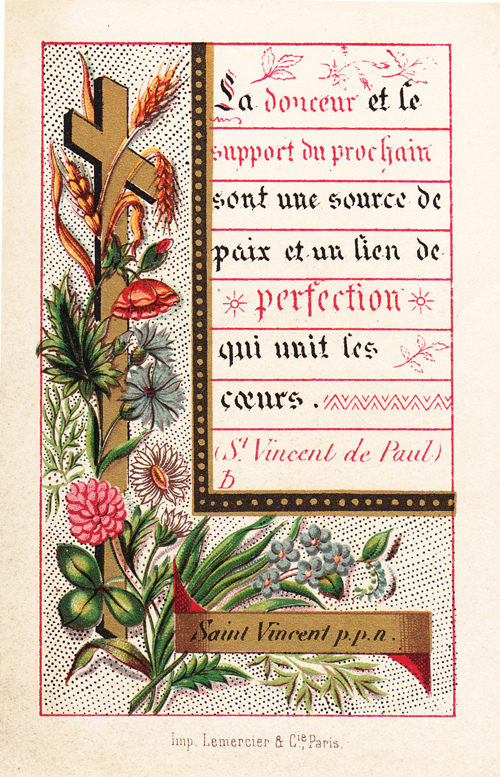 La douceur et le
support du prochain
sont une source de
paix et un lien de
perfection
qui unit les
cœurs.
(St. Vincent de Paul)
b
Saint Vincent p.p.n.
Imp. Lemercier & Cie, Paris.